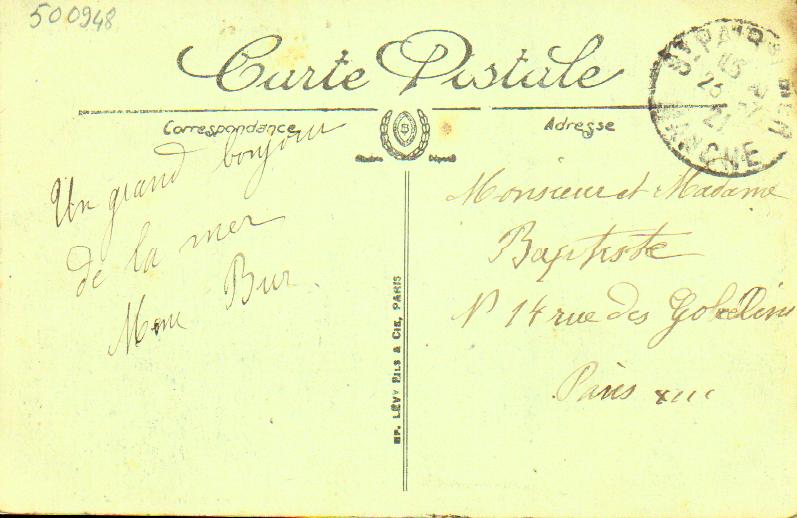 500948
Carte Postale
Correspondance
Adresse
Un grand bonjour
de la mer
Mme Bur
Monsieur et Madame
Baptiste
N 14 rue des Gobelins
Paris XIII
LÉVY FILS & CIE, PARIS
ST PAIR S MER
23
21
MANCHE